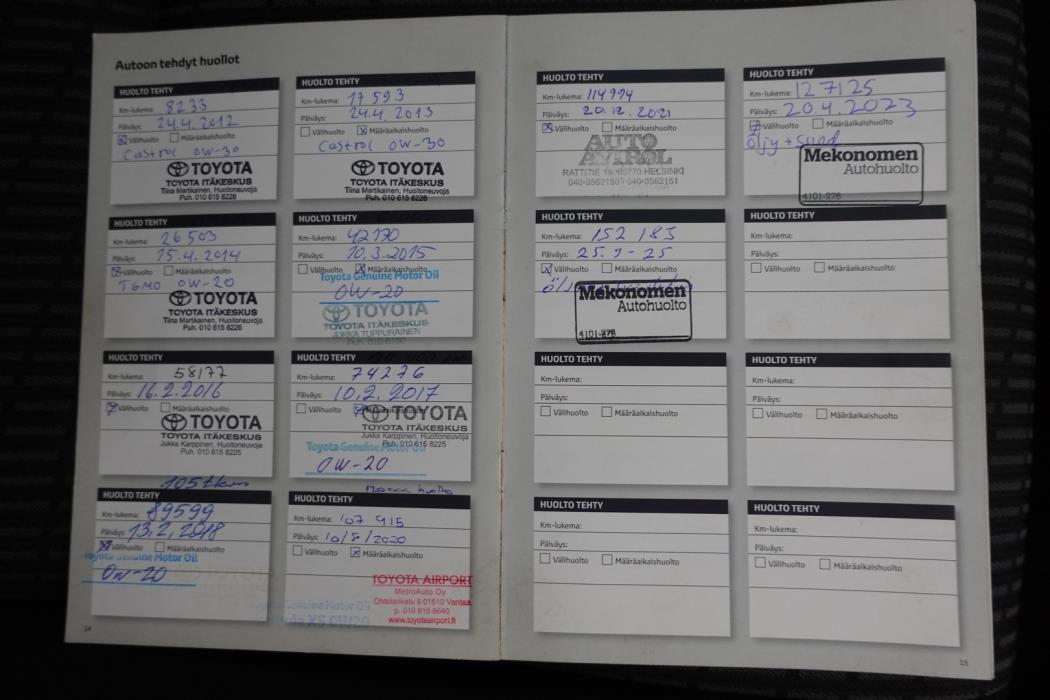 Autoon tehdyt huollot
HUOLTO TEHTY
Km-lukema: 8233
Päiväys: 24.4.2012
Välihuolto Määräaikaishuolto
Castrol 0W-30
TOYOTA
TOYOTA ITÄKESKUS
Tiina Martikainen, Huoltoneuvoja
Puh. 010 615 8226
HUOLTO TEHTY
Km-lukema: 17 593
Päiväys: 24.4.2013
Välihuolto Määräaikaishuolto
Castrol 0W-30
TOYOTA
TOYOTA ITÄKESKUS
Tiina Martikainen, Huoltoneuvoja
Puh. 010 615 8226
HUOLTO TEHTY
Km-lukema: 26 503
Päiväys: 15.4.2014
Välihuolto Määräaikaishuolto
TGMO 0W-20
TOYOTA
TOYOTA ITÄKESKUS
Tiina Martikainen, Huoltoneuvoja
Puh. 010 615 8226
HUOLTO TEHTY
Km-lukema: 42170
Päiväys: 10.3.2015
Välihuolto Määräaikaishuolto
Toyota Genuine Motor Oil
0W-20
TOYOTA
TOYOTA ITÄKESKUS
JUKKA TUPPURAINEN
HUOLTO TEHTY
Km-lukema: 58177
Päiväys: 16.2.2016
Välihuolto Määräaikaishuolto
TOYOTA
TOYOTA ITÄKESKUS
Jukka Karppinen, Huoltoneuvoja
Puh. 010 615 8225
HUOLTO TEHTY
Km-lukema: 74276
Päiväys: 10.2.2017
Välihuolto Määräaikaishuolto
TOYOTA
TOYOTA ITÄKESKUS
Jukka Karppinen, Huoltoneuvoja
Puh. 010 615 8225
Toyota Genuine Motor Oil
0W-20
105tkm
HUOLTO TEHTY
Km-lukema: 89599
Päiväys: 13.2.2018
Välihuolto Määräaikaishuolto
Toyota Genuine Motor Oil
0W-20
TOYOTA
huolto
HUOLTO TEHTY
Km-lukema: 107 915
Päiväys: 10/8/2020
Välihuolto Määräaikaishuolto
TOYOTA AIRPORT
MetroAuto Oy
Ohtolankatu 6 01510 Vantaa
p. 010 615 8640
www.toyotaairport.fi
Genuine Motor Oil
14
HUOLTO TEHTY
Km-lukema: 114994
Päiväys: 20.12.2021
Välihuolto Määräaikaishuolto
AUTO
AVIROL
RATTITIE 19, 00770 HELSINKI
040-3562150? 040-3562151
HUOLTO TEHTY
Km-lukema: 127125
Päiväys: 20.4.2023
Välihuolto Määräaikaishuolto
öljy + suod
Mekonomen
Autohuolto
4101-276
HUOLTO TEHTY
Km-lukema: 152 183
Päiväys: 25.9-25
Välihuolto Määräaikaishuolto
Mekonomen
Autohuolto
4101-276
HUOLTO TEHTY
Km-lukema:
Päiväys:
Välihuolto Määräaikaishuolto
HUOLTO TEHTY
Km-lukema:
Päiväys:
Välihuolto Määräaikaishuolto
HUOLTO TEHTY
Km-lukema:
Päiväys:
Välihuolto Määräaikaishuolto
HUOLTO TEHTY
Km-lukema:
Päiväys:
Välihuolto Määräaikaishuolto
HUOLTO TEHTY
Km-lukema:
Päiväys:
Välihuolto Määräaikaishuolto
15